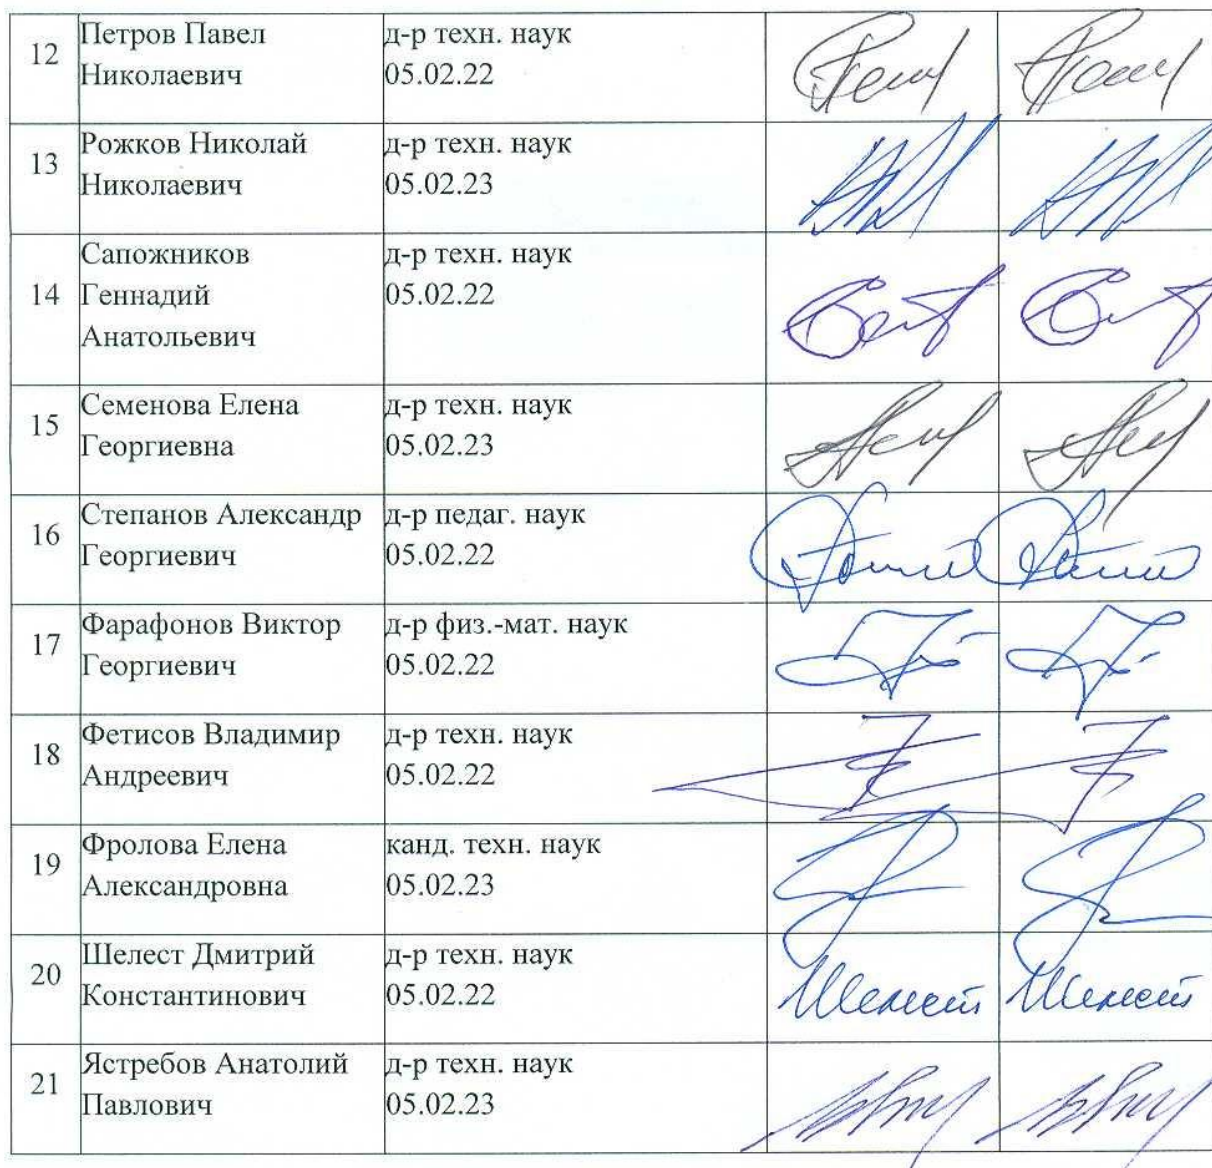 12
Петров Павел
Николаевич
д-р техн. наук
05.02.22
13
Рожков Николай
Николаевич
д-р техн. наук
05.02.23
14
Сапожников
Геннадий
Анатольевич
д-р техн. наук
05.02.22
15
Семенова Елена
Георгиевна
д-р техн. наук
05.02.23
16
Степанов Александр
Георгиевич
д-р педаг. наук
05.02.22
17
Фарафонов Виктор
Георгиевич
д-р физ.-мат. наук
05.02.22
18
Фетисов Владимир
Андреевич
д-р техн. наук
05.02.22
19
Фролова Елена
Александровна
канд. техн. наук
05.02.23
20
Шелест Дмитрий
Константинович
д-р техн. наук
05.02.22
Шелест Шелест
21
Ястребов Анатолий
Павлович
д-р техн. наук
05.02.23